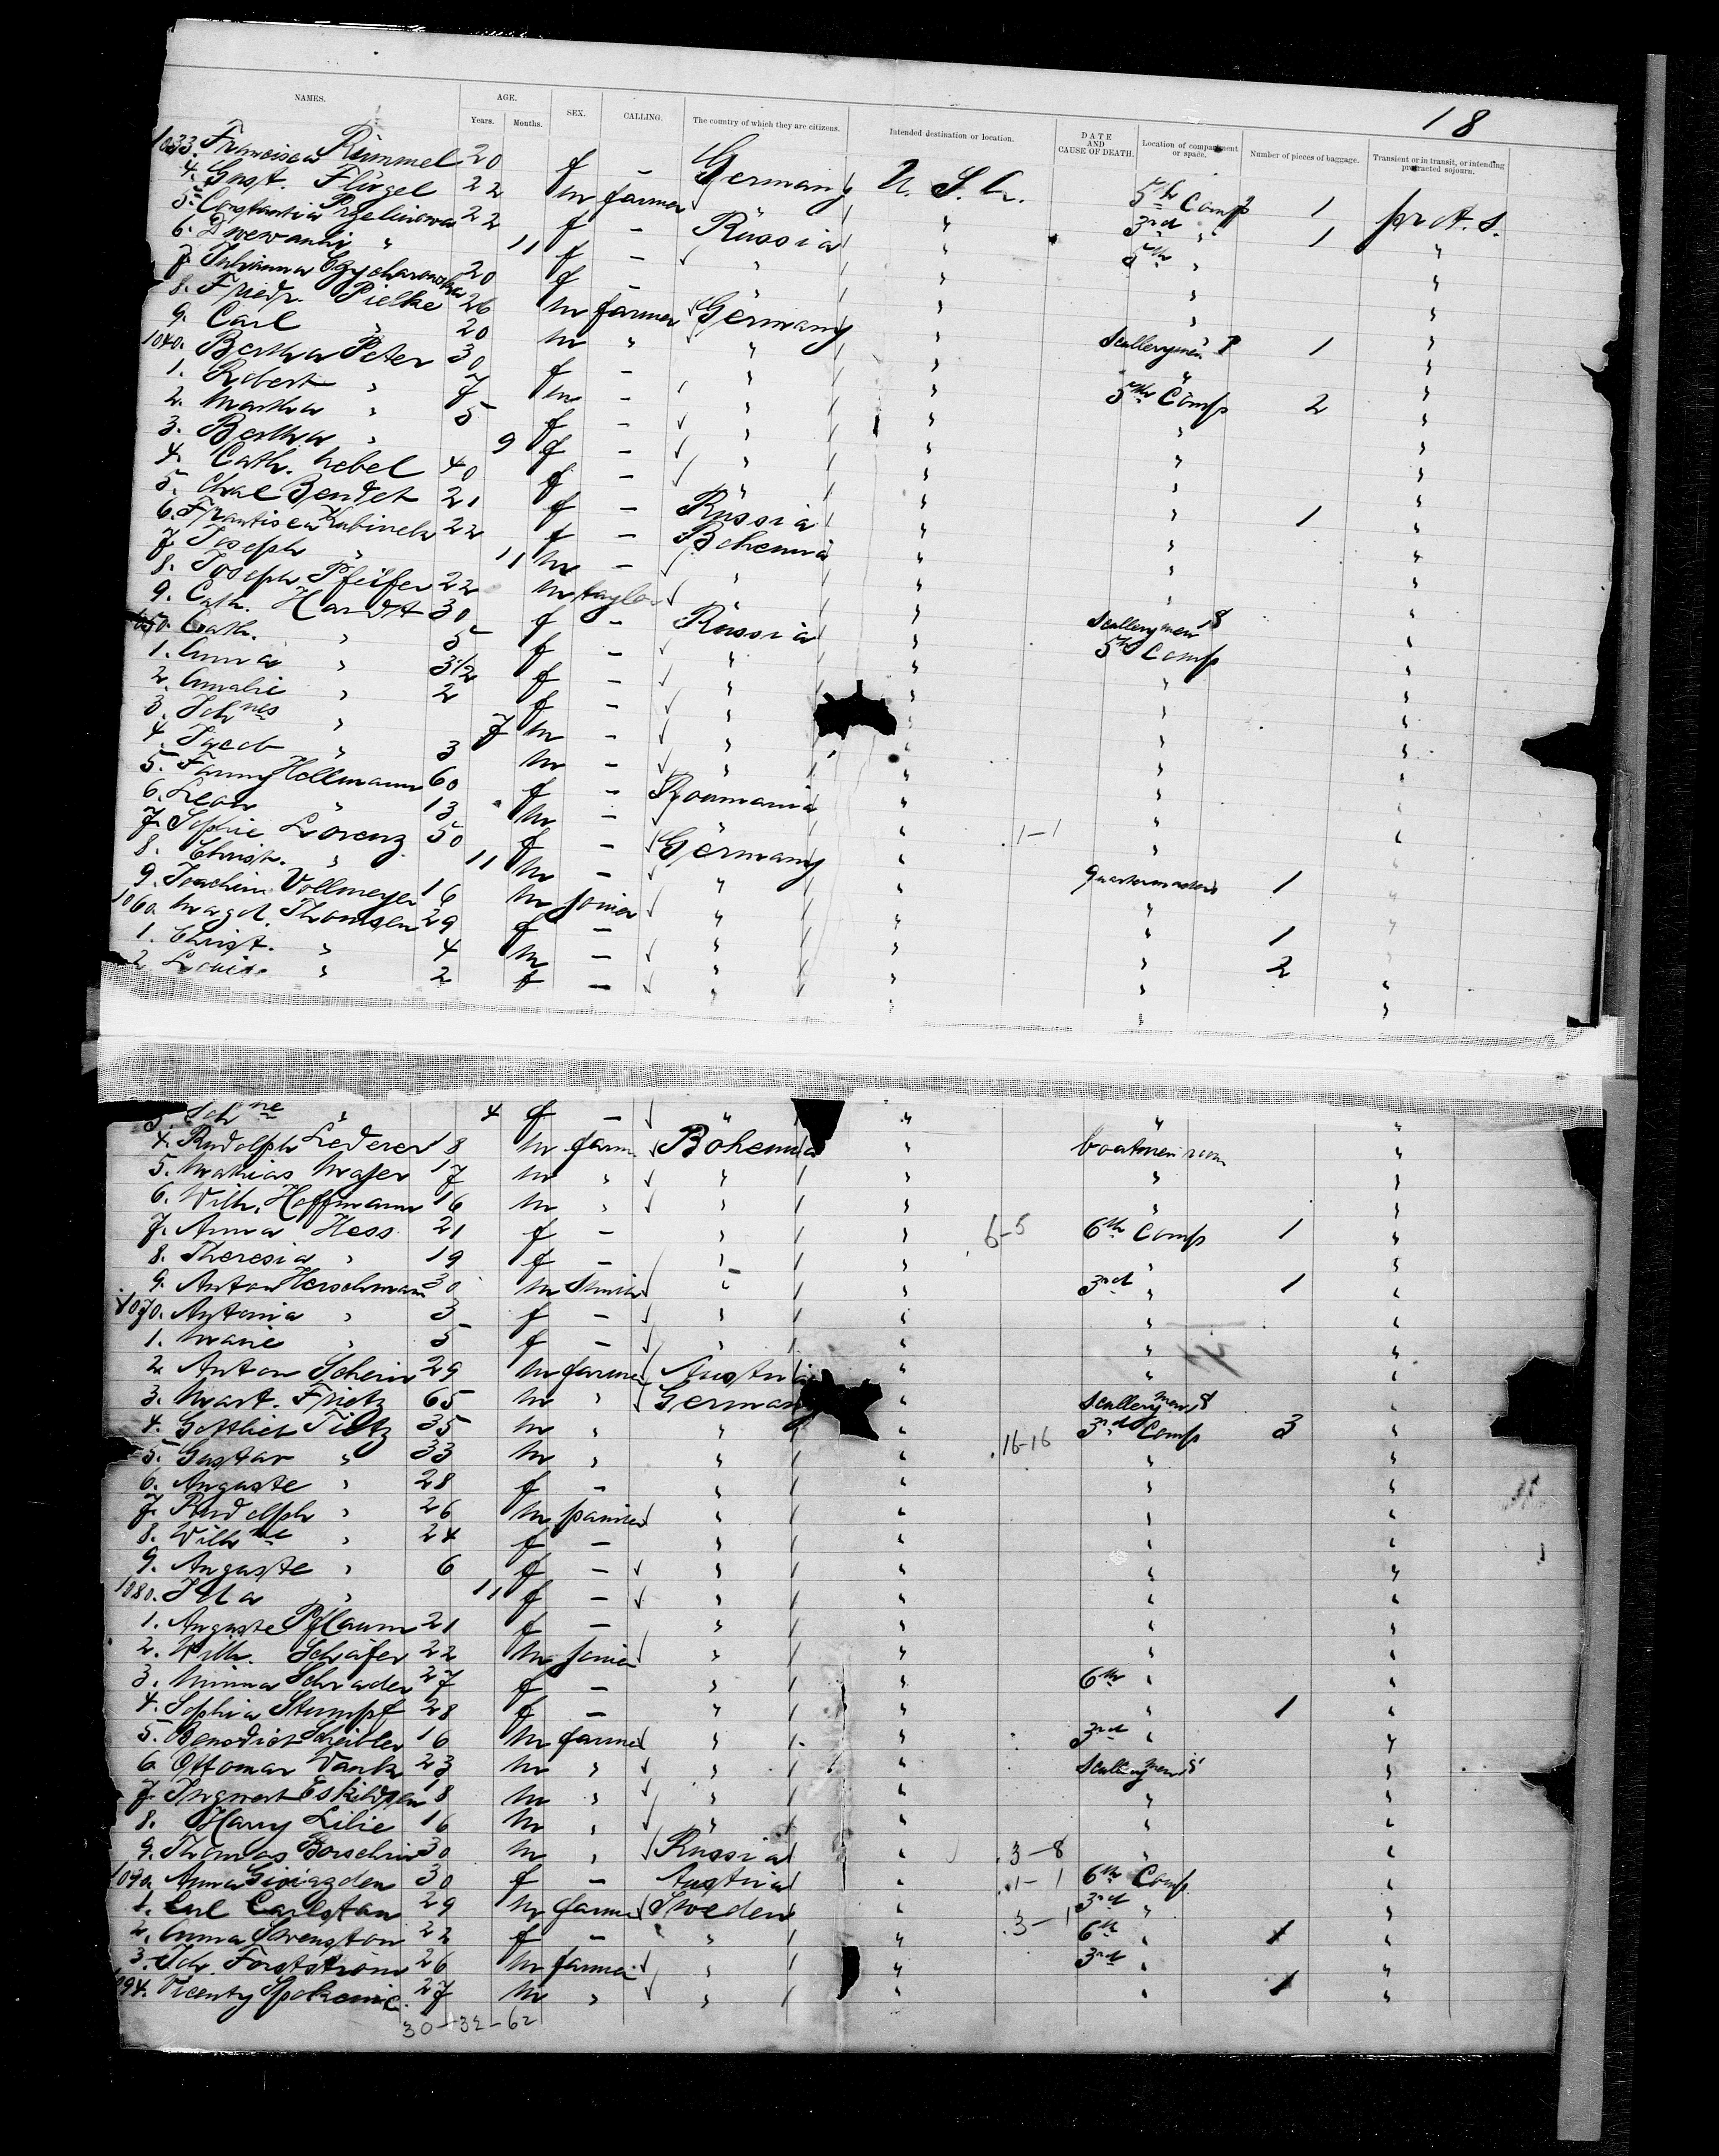 18
NAMES. AGE. SEX. CALLING. The country of which they are citizens. Intended destination or location. DATE AND CAUSE OF DEATH. Location of compartment or space. Number of pieces of baggage. Transient or in transit, or intending protracted sojourn.
Years. Months.
1033. Francisca Rümmel 20 f – Germany U. S. A. 5th Comp 1 pr A. S.
4. Gust. Flügel 22 m farmer " " 3rd " 1 "
5. Constantia 22 f – Russia " 5th " "
6. " 11 f – " " " "
7. Johanna 20 f – " " " "
8. Friedr. Pielke 26 m farmer Germany " Scullerymen 1 "
9. Carl " 20 m " " " " "
1040. Bertha Peter 30 f – " " 5th Comp 2 "
1. Robert " 7 m – " " " "
2. Martha " 5 f – " " " "
3. Bertha " 9 f – " " " "
4. Cath. Nebel 40 f – " " " 1 "
5. Bendet 21 f – Russia " " "
6. Frantisca Kubinek 22 f – Bohemia " " "
7. Joseph " 11 m – " " " "
8. Joseph Pfeifer 22 m taylor " " Scullerymen "
9. Cath. Hardt 30 f – Russia " 5th Comp "
1050. Cath. " 5 f – " " " "
1. Anna " 3½ f – " " " "
2. Amalie " 2 f – " " " "
3. Johnes " 7 m – " " " "
4. Jacob " 3 m – " " " "
5. Fanny Hellmann 60 f – Roumania " " "
6. Leon " 13 m – " " 1–1 " "
7. Sophie Lorenz 50 f – Germany " Quartermasters 1 "
8. Christ. " 11 m – " " " "
9. Joachim Vollmeyer 16 m joiner " " " 1 "
1060. Magd. Thomsen 29 f – " " " 2 "
1. Christ. " 4 m – " " " "
2. Louise " 2 f – " " " "
3. Johne " 4 f – " " " "
4. Rudolph Lederer 18 m farm. Böhemia " boatmen room "
5. Mathias Mayer 17 m " " " " "
6. Wilh. Hoffmann 16 m " " " " "
7. Anna Hess 21 f – " " 6–5 6th Comp 1 "
8. Theresia " 19 f – " " " "
9. Anton Herschmann 30 m Smith " " 3rd " 1 "
1070. Antonia " 3 f – " " " "
1. Marie " 5 f – " " " "
2. Anton Schein 29 m farmer Austria " " "
3. Mart. Frietz 65 m " Germany " Scullerymens "
4. Gottlieb Tietz 35 m " " " 16–16 3rd Comp 3 "
5. Gustav " 33 m " " " " "
6. Auguste " 28 f – " " " "
7. Rudolph " 26 m " " " "
8. Wilhne " 24 f – " " " "
9. Auguste " 6 f – " " " "
1080. " 11 f – " " " "
1. Auguste Pflaum 21 f – " " " "
2. Wilh. Schäfer 22 m joiner " " " "
3. Minna Schrader 27 f – " " 6th " "
4. Sophia Stumpf 28 f – " " " 1 "
5. Benedict Scheibler 16 m farmer " " 3rd " "
6. Ottomar Vank 23 m " " " Scullerymens "
7. Ingwert Eskildsen 18 m " " " " "
8. Harry Lilie 16 m " " " " "
9. Thomas 30 m " Russia " 3–8 " "
1090. Anna 30 f – Austria " 1–1 6th Comp "
1. Carl Carlstan 29 m farmer Sweden " 3–1 3rd " "
2. Anna Swenston 22 f – " " 6th " 1 "
3. Joh. Forstström 26 m farmer " " 3rd " "
1094. Vicenty 27 m " " " " 1 "
30–32–62